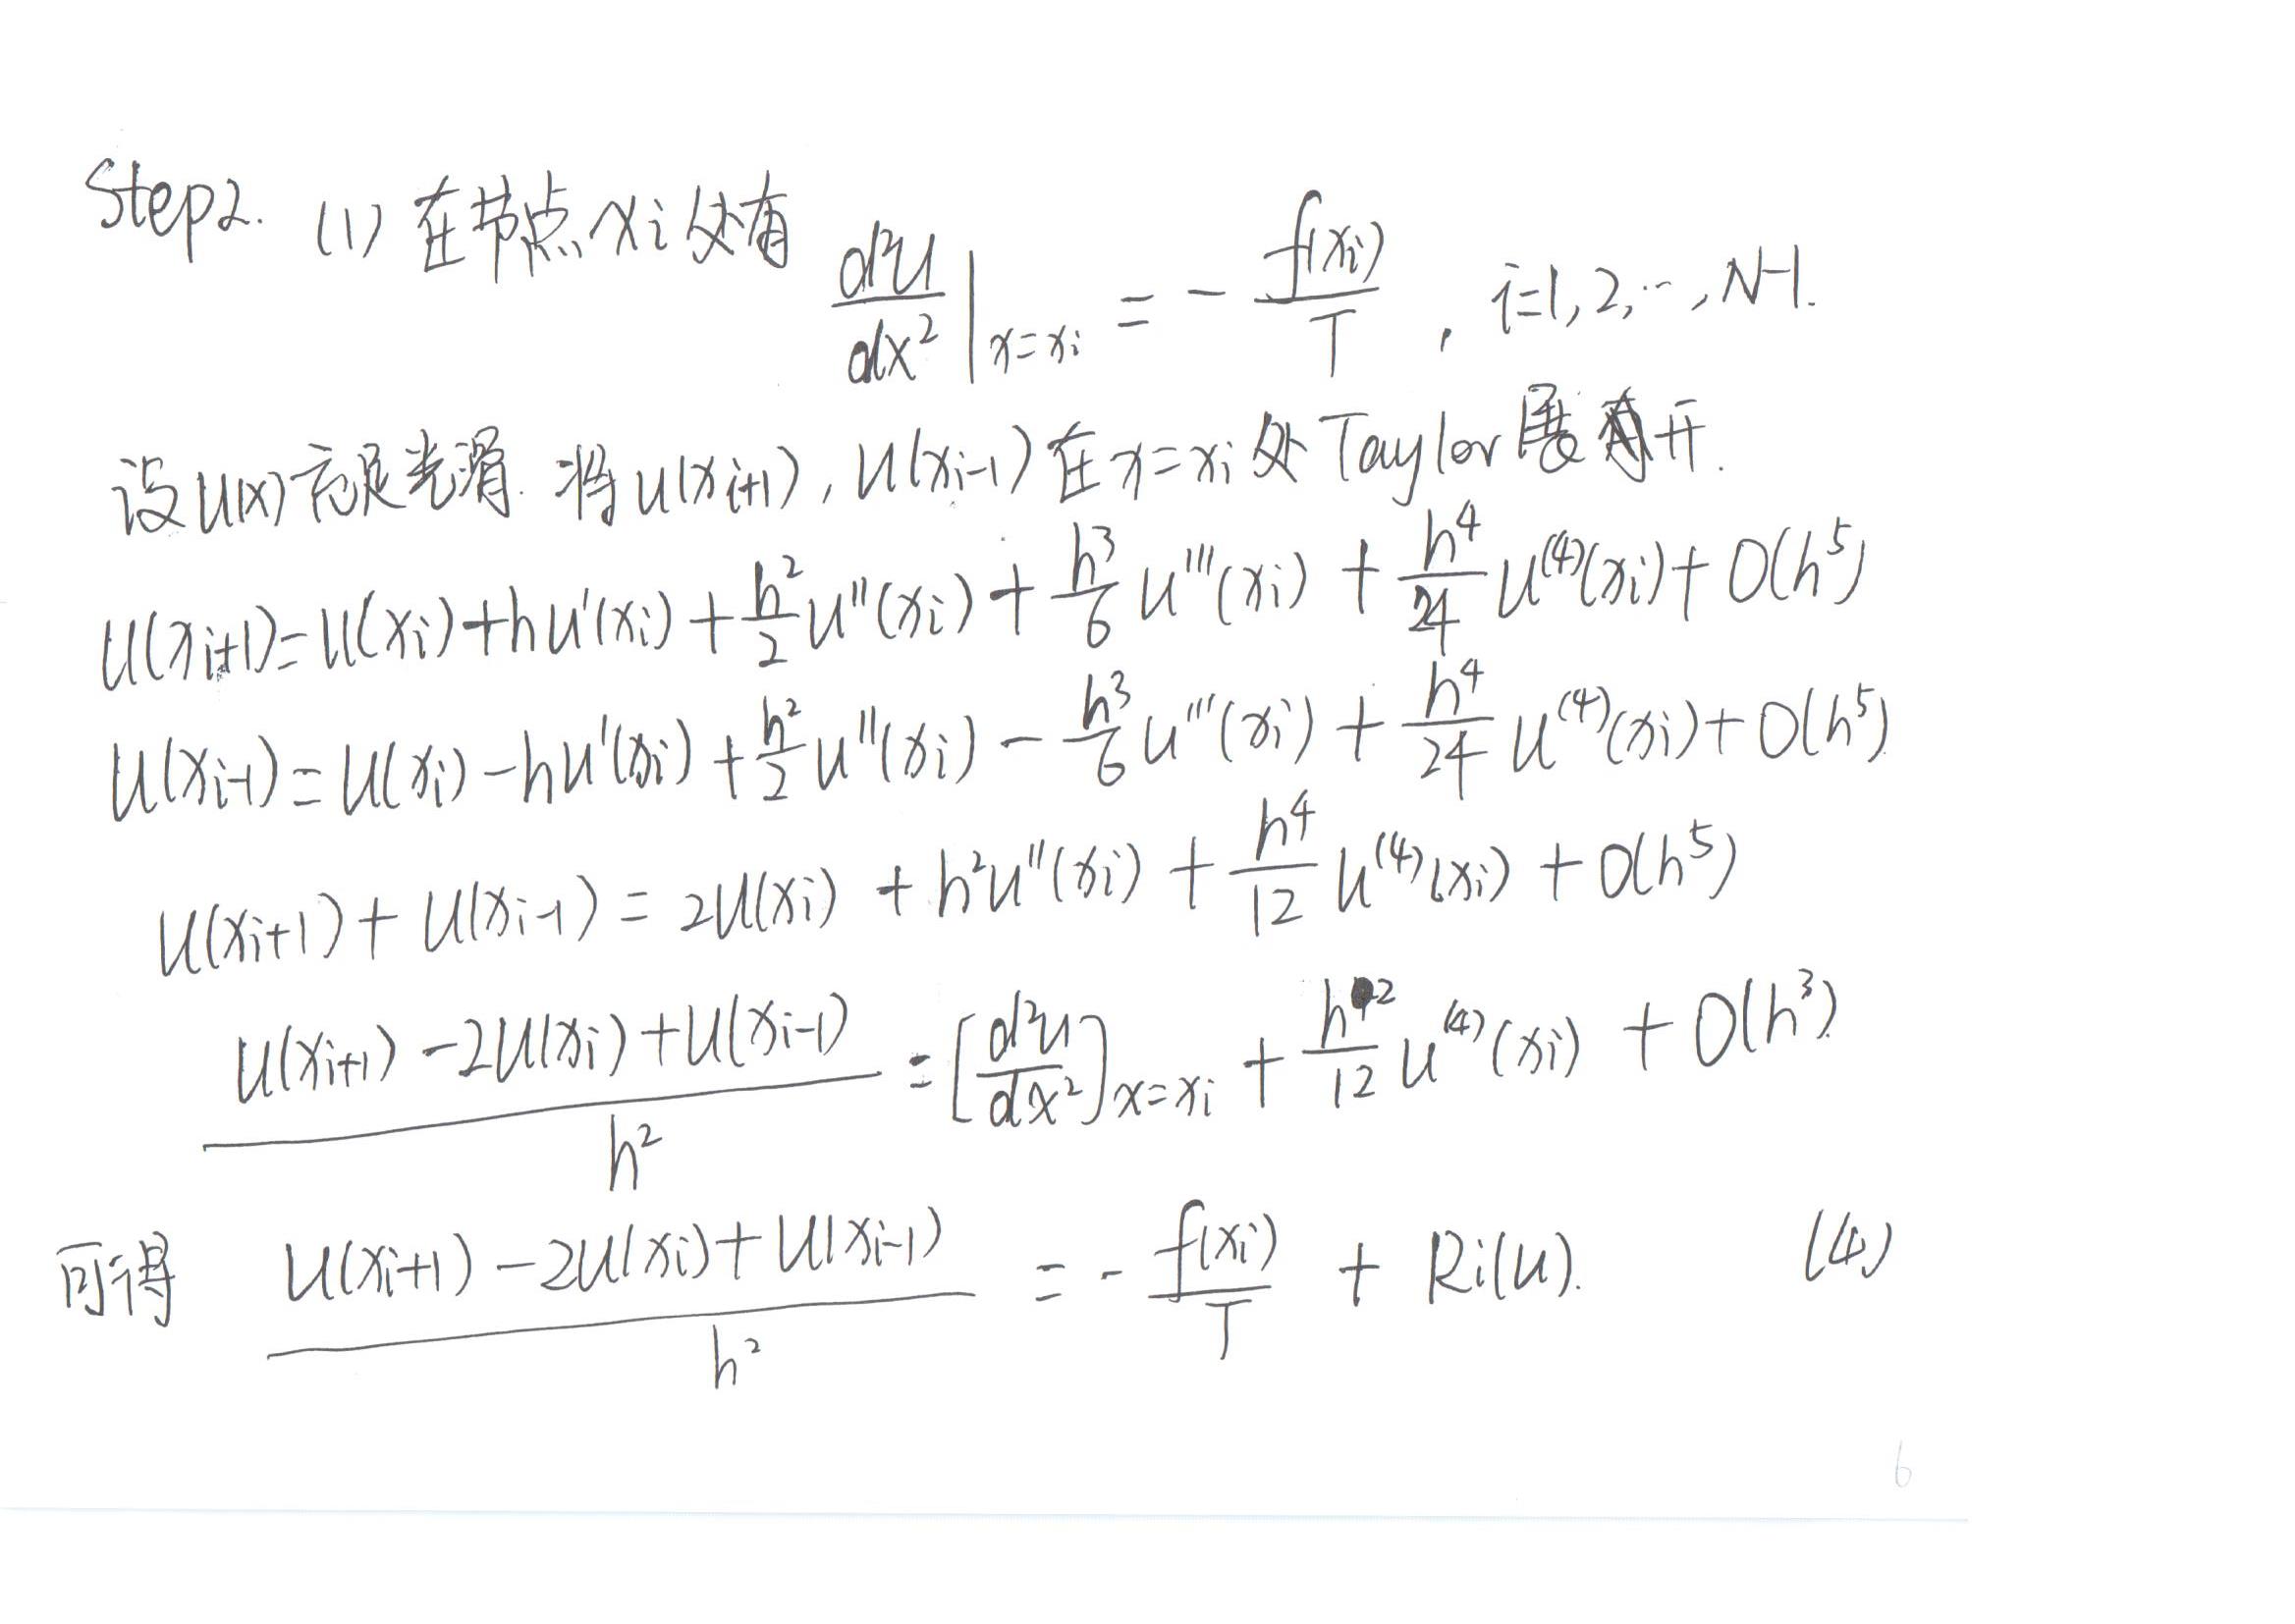 Step2. (1) 在节点 xi 处有
d²u/dx² |x=xi = - f(xi)/T , i=1,2,…,N-1.
设u(x)充足光滑. 将u(xi+1), u(xi-1)在x=xi处Taylor展开.
u(xi+1)=u(xi)+hu'(xi)+h²/2 u''(xi)+h³/6 u'''(xi)+h⁴/24 u⁽⁴⁾(xi)+O(h⁵)
u(xi-1)=u(xi)-hu'(xi)+h²/2 u''(xi)-h³/6 u'''(xi)+h⁴/24 u⁽⁴⁾(xi)+O(h⁵)
u(xi+1)+u(xi-1)=2u(xi)+h²u''(xi)+h⁴/12 u⁽⁴⁾(xi)+O(h⁵)
(u(xi+1)-2u(xi)+u(xi-1))/h² = [d²u/dx²]x=xi + h²/12 u⁽⁴⁾(xi)+O(h³)
可得 (u(xi+1)-2u(xi)+u(xi-1))/h² = - f(xi)/T + Ri(u). (4)
6